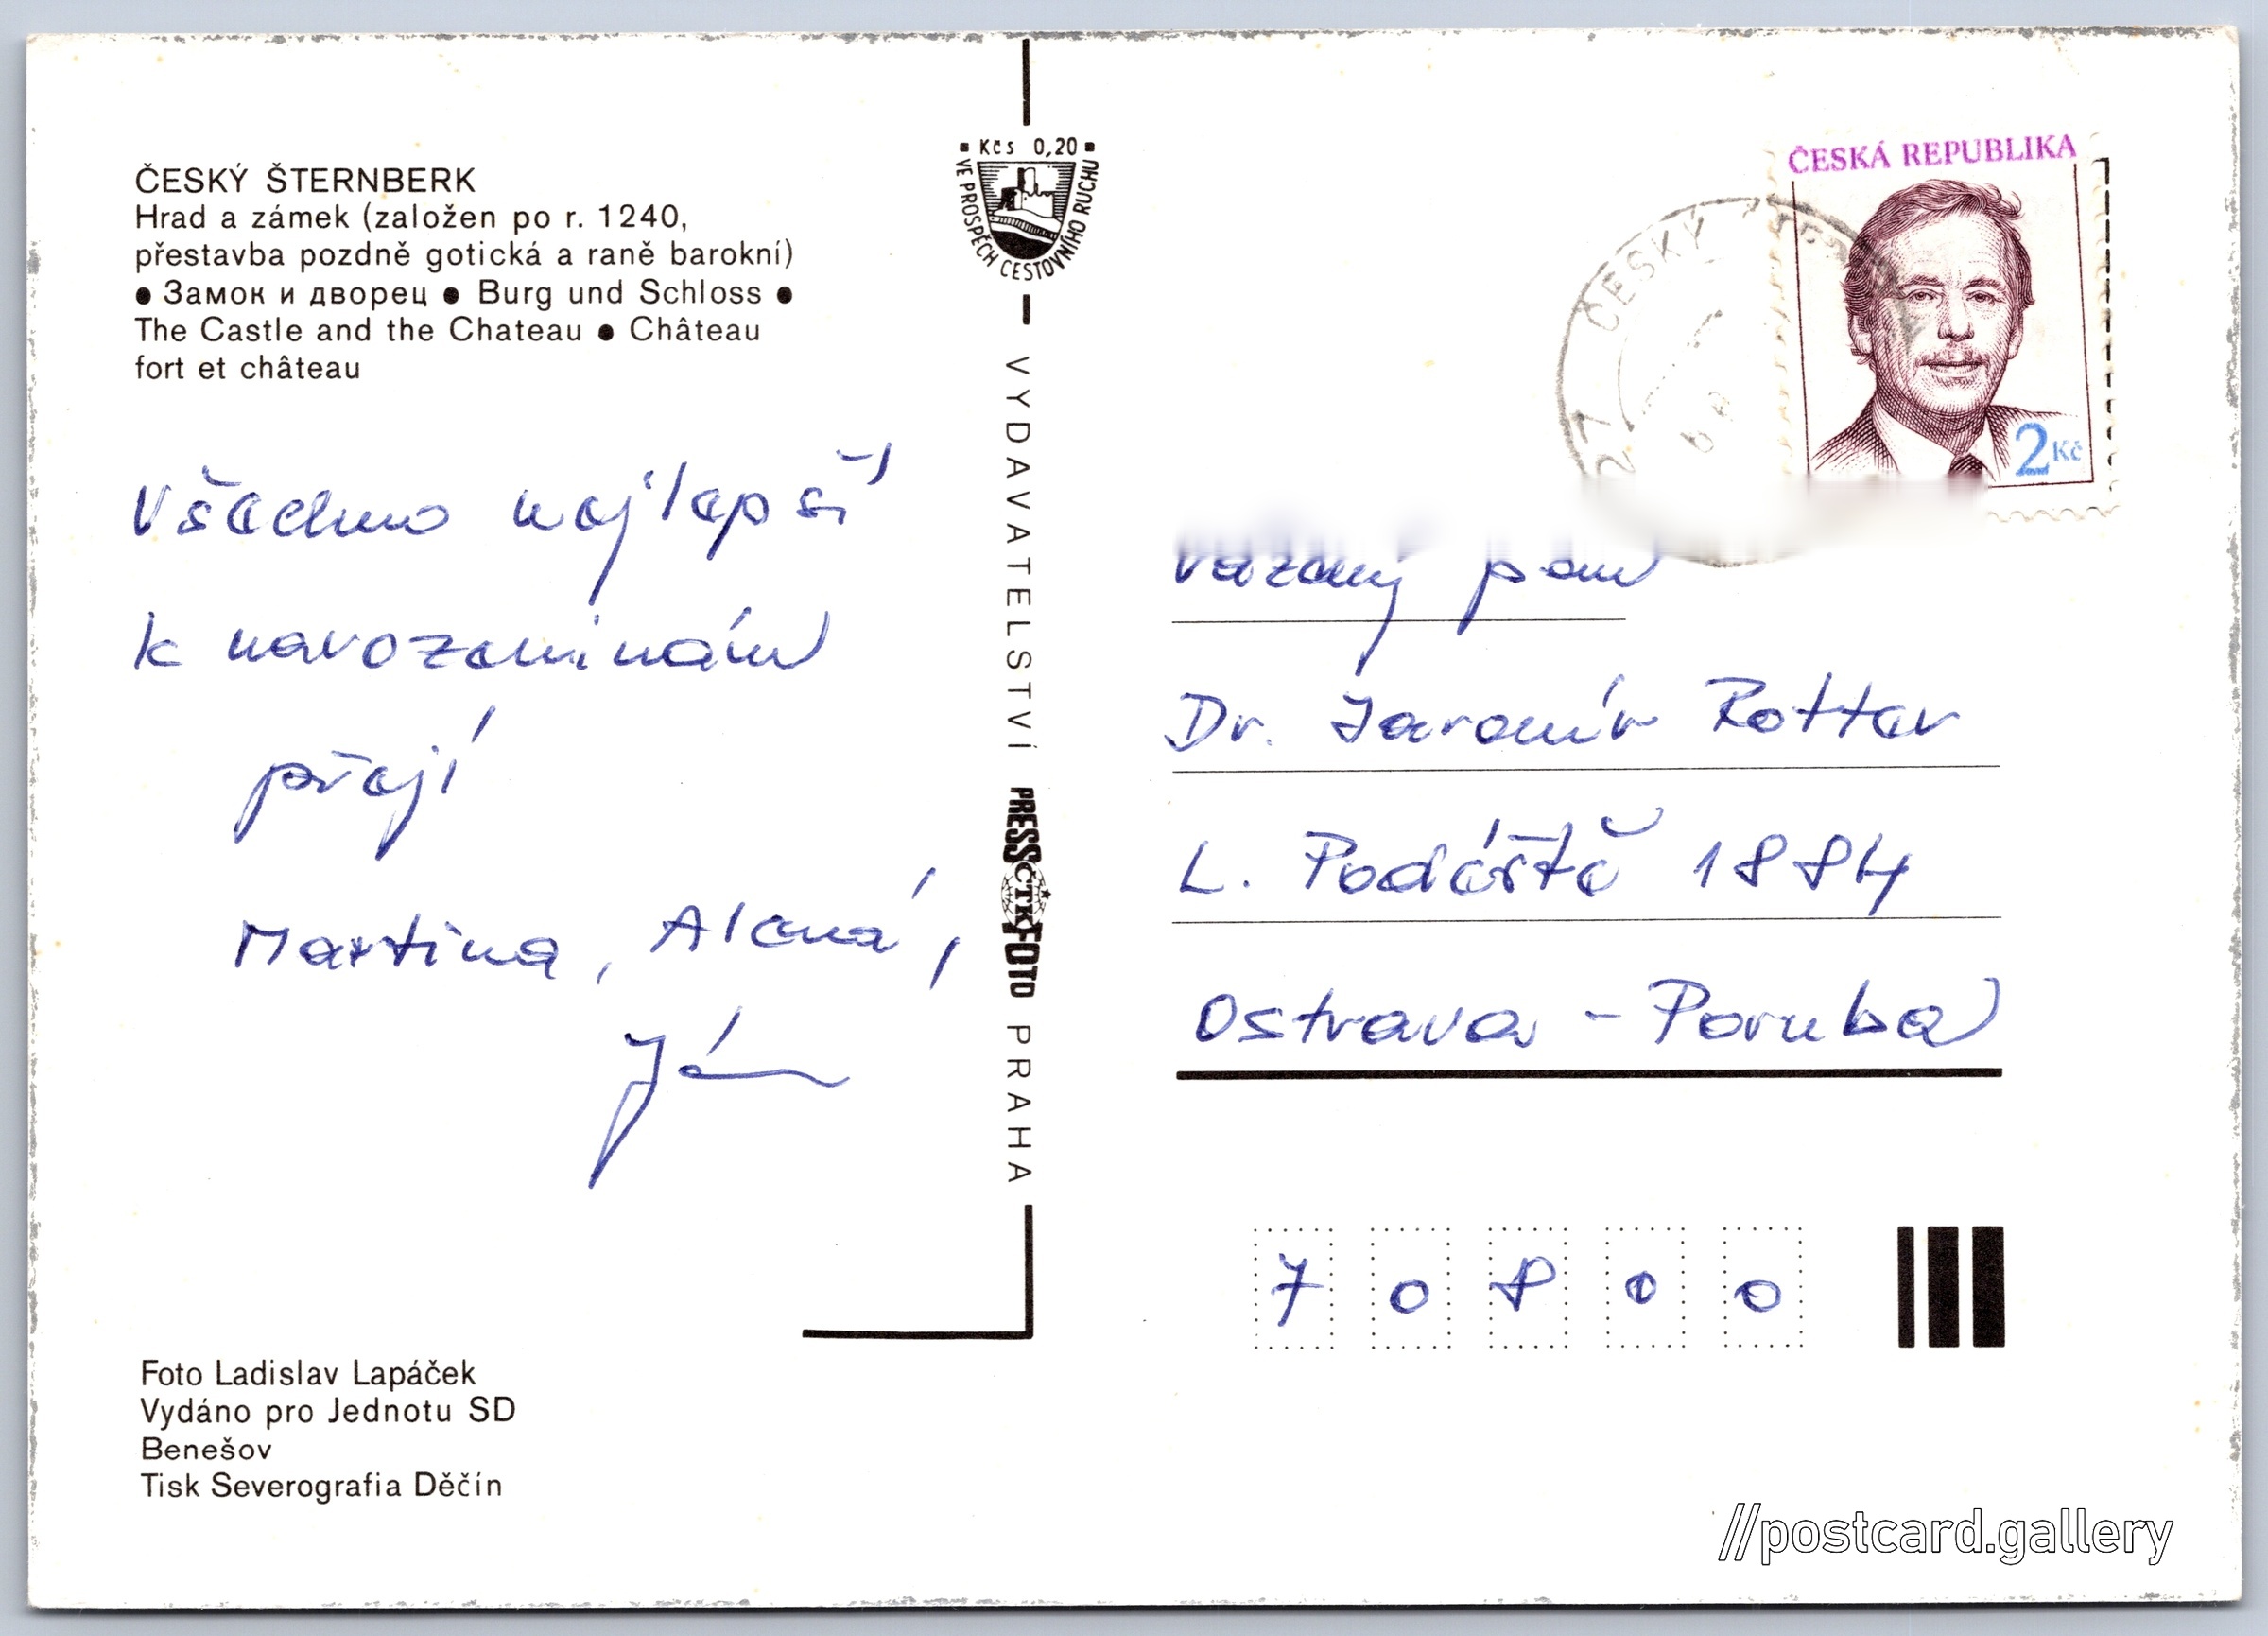 ČESKÝ ŠTERNBERK
Hrad a zámek (založen po r. 1240,
přestavba pozdně gotická a raně barokní)
● Замок и дворец ● Burg und Schloss ●
The Castle and the Chateau ● Château
fort et château
Všechno nejlepší
k narozeninám
přejí
Martina, Alena,
Ján
Foto Ladislav Lapáček
Vydáno pro Jednotu SD
Benešov
Tisk Severografia Děčín
Kčs 0,20
VE PROSPĚCH CESTOVNÍHO RUCHU
VYDAVATELSTVÍ PRESSFOTO PRAHA
ČTK
ČESKÁ REPUBLIKA
2 Kč
ČESKÝ
Vážený pan
Dr. Jaromír Rottar
L. Podéště 1884
Ostrava - Poruba
7 0 8 0 0
//postcard.gallery